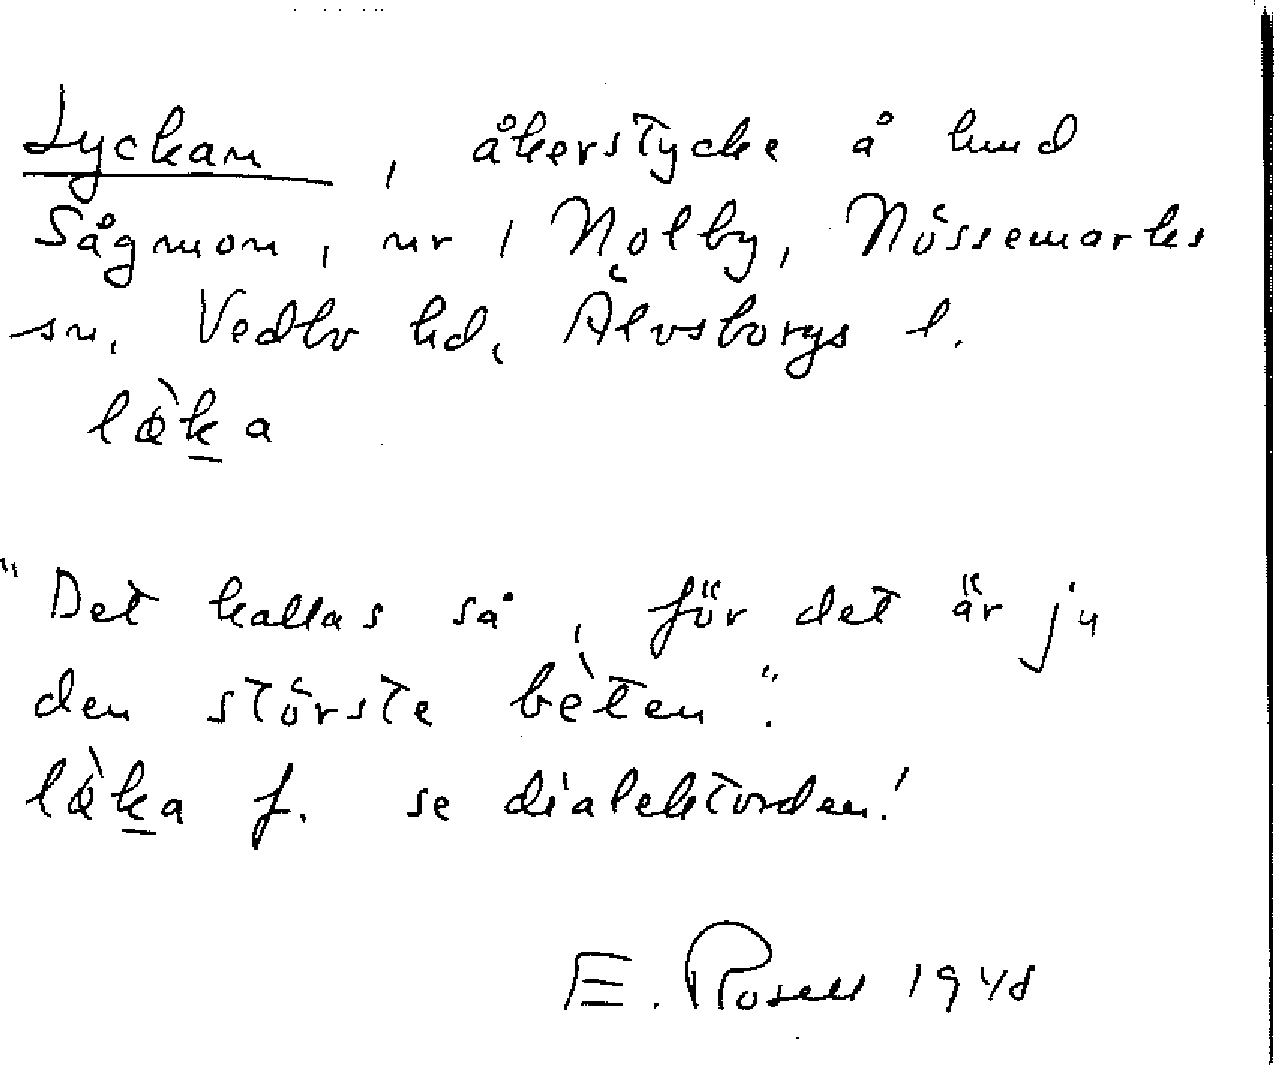 Lyckan, åkerstycke å hmd
Sågmon, nr 1 Nolby, Nössemarks
sn, Vedbo hd, Älvsborgs l.
lø̀ka
"Det kallas så, för det är ju
den störste bèten".
lø̀ka f. se dialektorden!
E. Rosell 1948